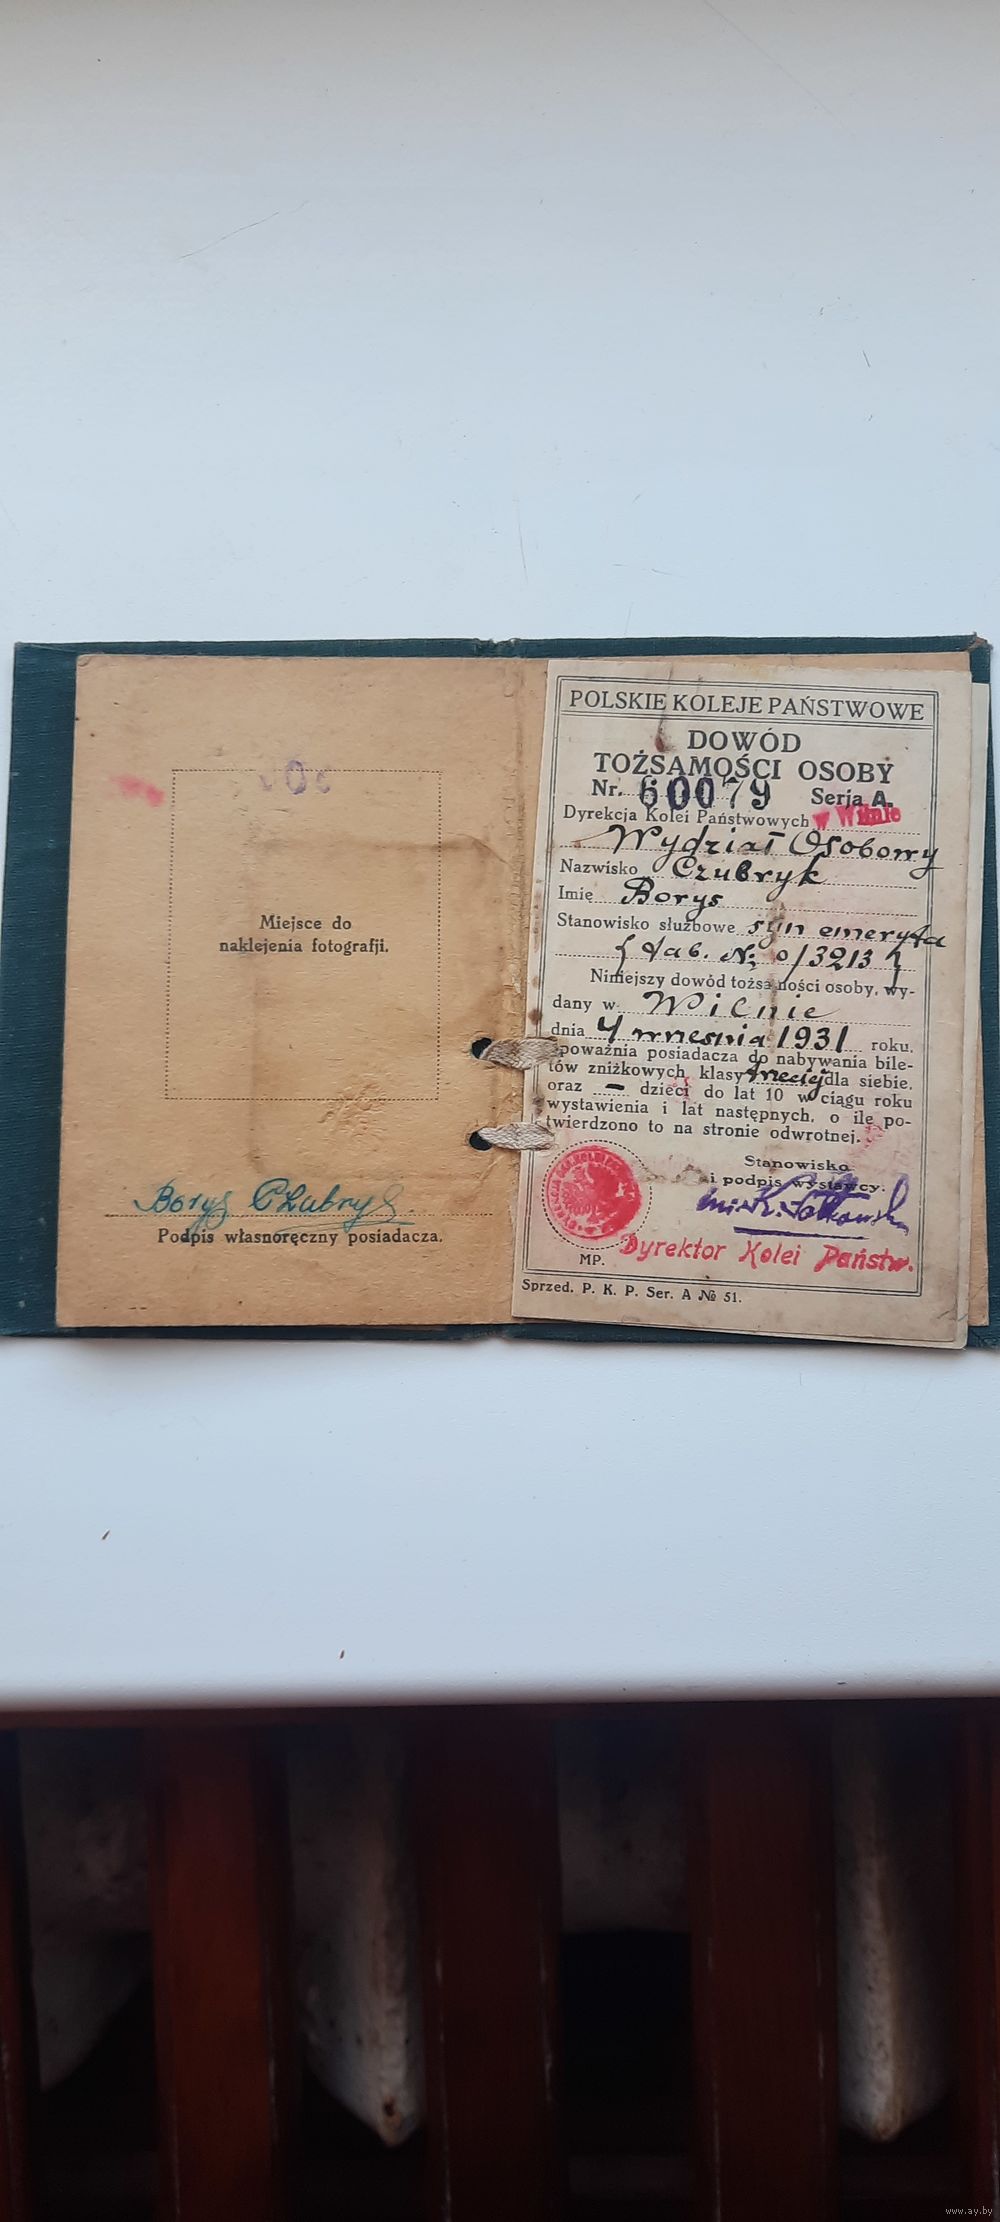 Miejsce do
naklejenia fotografji.
Borys Czubryk
Podpis własnoręczny posiadacza.
POLSKIE KOLEJE PAŃSTWOWE
DOWÓD
TOŻSAMOŚCI OSOBY
Nr. 60079 Serja A.
Dyrekcja Kolei Państwowych w Wilnie
Wydział Osobowy
Nazwisko Czubryk
Imię Borys
Stanowisko służbowe syn emeryta
(tab. № 0/3213)
Niniejszy dowód tożsamości osoby, wy-
dany w Wilnie
dnia 4 wrzesnia 1931 roku,
upoważnia posiadacza do nabywania bile-
tów zniżkowych klasy trzeciej dla siebie,
oraz — dzieci do lat 10 w ciągu roku
wystawienia i lat następnych, o ile po-
twierdzono to na stronie odwrotnej.
Stanowisko
i podpis wystawcy.
Dyrektor Kolei Państw.
MP.
Sprzed. P. K. P. Ser. A № 51.
www.ay.by